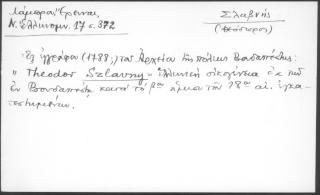 Λάμπρου Ἔρευναι
Ν. Ἑλληνομν. 17 σ. 372
Σλαβνής
(Θεόδωρος)
Ἐξ ἐγγράφου (1788;) τοῦ Ἀρχείου τῆς πόλεως Βουδαπέστης:
" Theodor Szlavny - Ἑλληνικὴ οἰκογένεια
ἐν Βουδαπέστῃ κατὰ τὸ βον ἥμισυ τοῦ 18ου αἰ. ἐγκα-
τεστημένην.